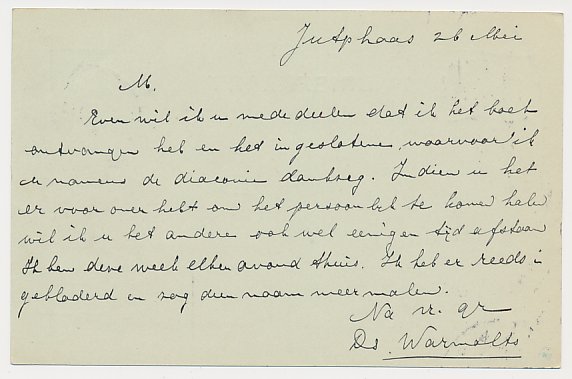 Jutphaas 26 Mei
M.
Even wil ik u mededeelen dat ik het boek
ontvangen heb en het ingeslotene, waarvoor ik
u namens de diaconie dankzeg. Indien u het
er voor over hebt om het persoonlijk te komen halen
wil ik u het andere ook wel eenigen tijd afstaan
Ik ben deze week elken avond thuis. Ik heb er reeds in
gebladerd en zag dien naam meermalen.
Na vr. gr
Ds. Warmolts